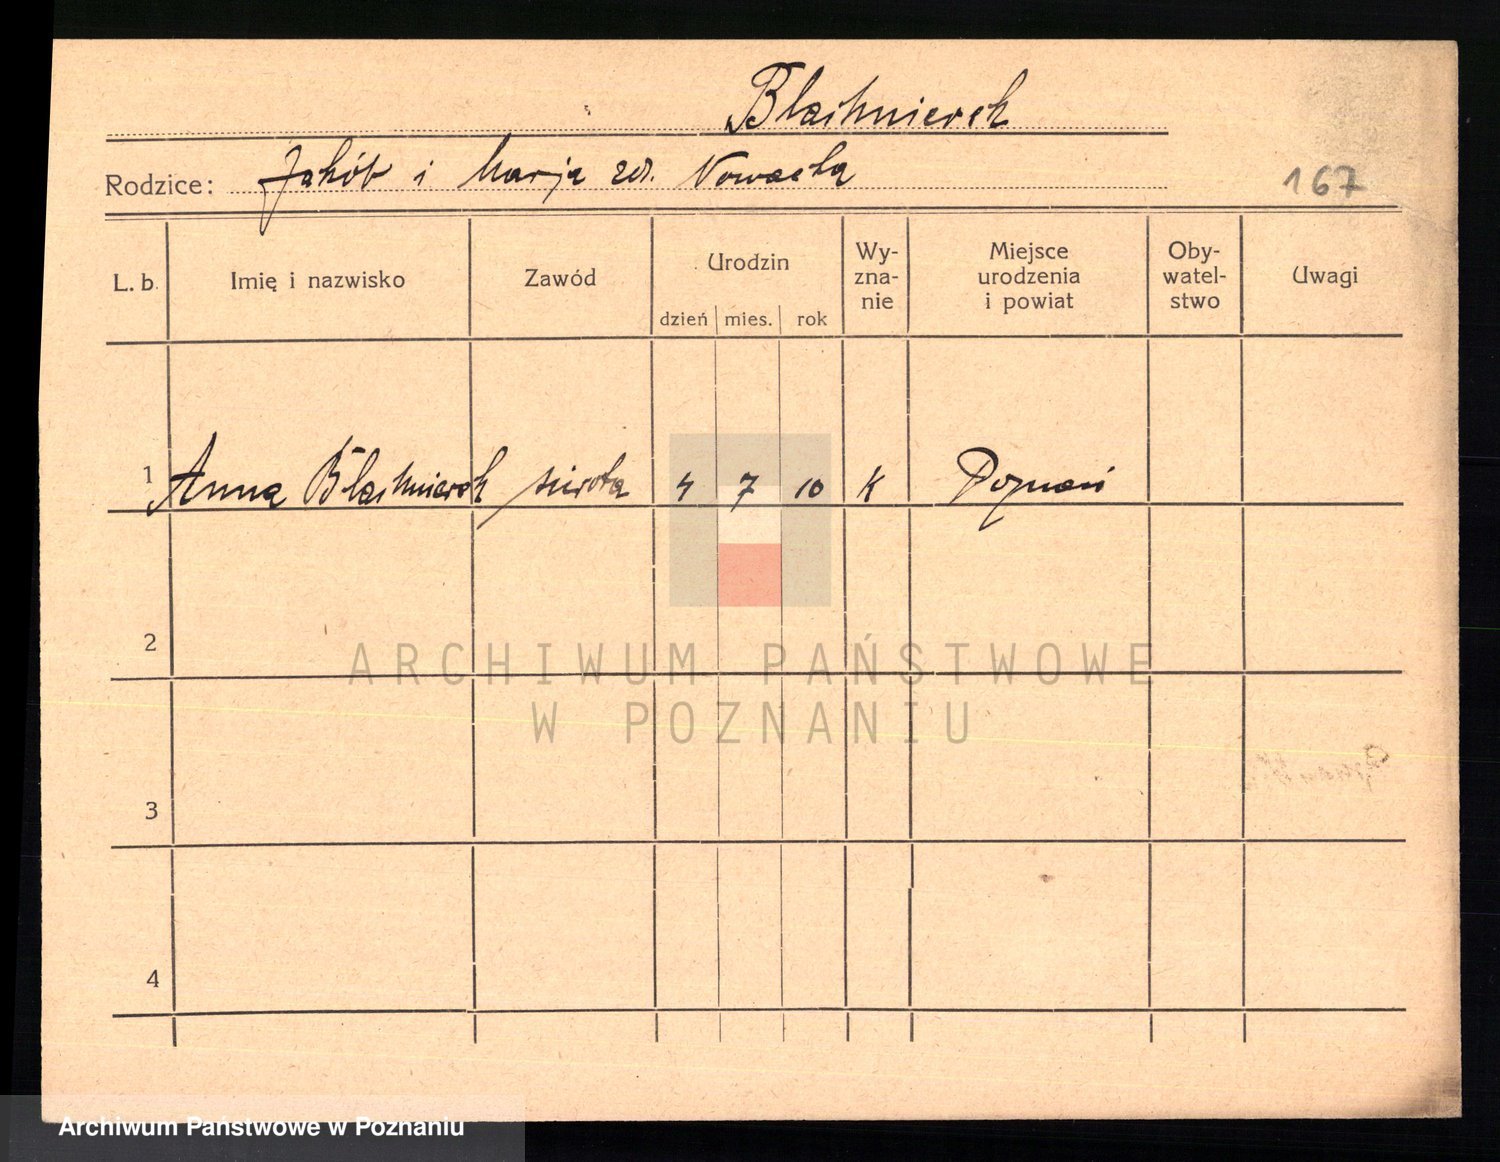 Blachnierek
Rodzice: Jakób i Marja z d. Nowacka
167
L. b. Imię i nazwisko Zawód Urodzin Wy-zna-nie Miejsce urodzenia i powiat Oby-watel-stwo Uwagi
dzień mies. rok
1 Anna Blachnierek sierota 4 7 10 k Poznań
2
ARCHIWUM PAŃSTWOWE
W POZNANIU
3
4
Archiwum Państwowe w Poznaniu